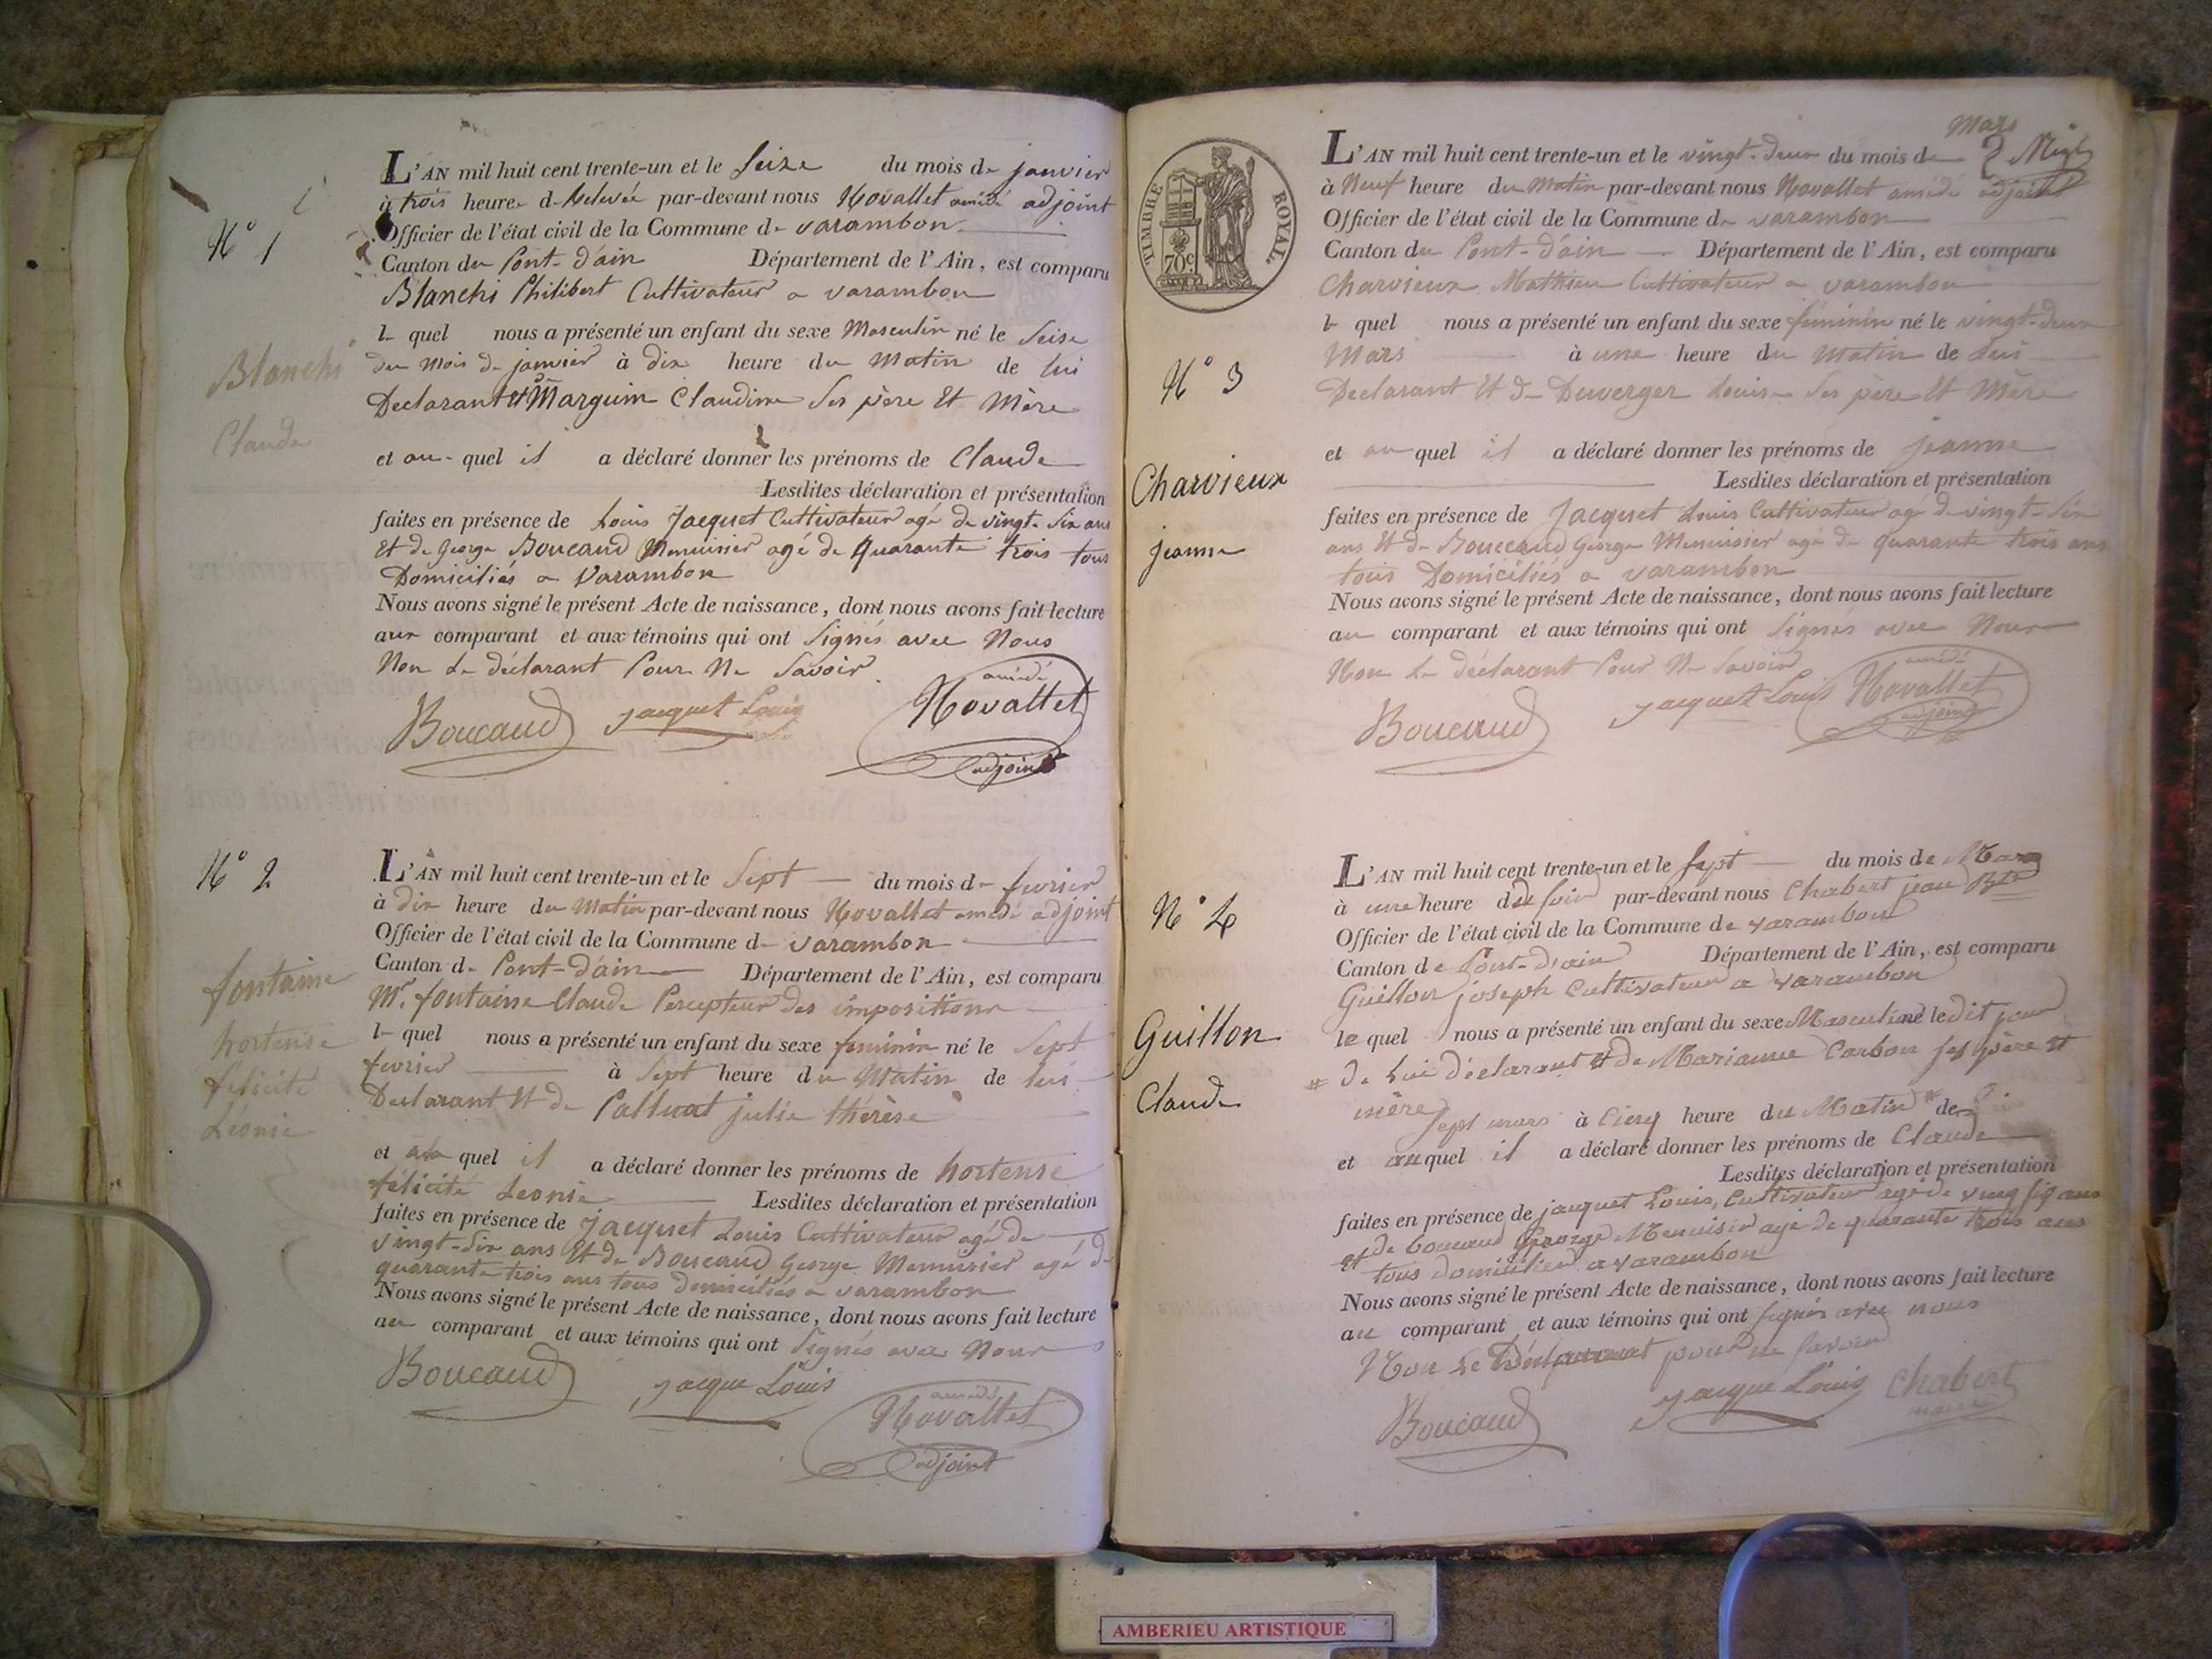 N° 1
Blanchi
Claude
L'AN mil huit cent trente-un et le Seize du mois de janvier
à trois heure de Relevée par-devant nous Novallet amédé adjoint
Officier de l'état civil de la Commune de varambon
Canton du Pont-d'ain Département de l'Ain, est comparu
Blanchi Philibert Cultivateur a varambon
le quel nous a présenté un enfant du sexe Masculin né le Seise
du Mois de janvier à dix heure du Matin de lui
Declarant et de Marguin Claudine Ses père Et Mère
et au-quel il a déclaré donner les prénoms de Claude
Lesdites déclaration et présentation
faites en présence de Louis Jacquet Cultivateur agé de vingt-Six ans
Et de George Boucaud Menuisier agé de Quarante trois tous
Domiciliés a Varambon
Nous avons signé le présent Acte de naissance, dont nous avons fait lecture
aux comparant et aux témoins qui ont Signés avec Nous
Non Le déclarant Pour Ne Savoir
Boucaud jacquet Louis amédé Novallet
adjoint
N° 2
fontaine
hortense
félicité
Léonie
L'AN mil huit cent trente-un et le Sept du mois de fevrier
à dix heure du Matin par-devant nous Novallet amédé adjoint
Officier de l'état civil de la Commune de varambon
Canton de Pont-d'ain Département de l'Ain, est comparu
Mr. fontaine Claude Percepteur des impositions
le quel nous a présenté un enfant du sexe feminin né le Sept
fevrier à Sept heure du Matin de lui
Declarant Et de Palluat julie thérèse
et a la quel il a déclaré donner les prénoms de hortense
félicité Leonie Lesdites déclaration et présentation
faites en présence de Jacquet Louis Cultivateur agé de
vingt-Six ans Et de Boucaud George Menuisier agé de
quarante trois ans tous domiciliés a varambon
Nous avons signé le présent Acte de naissance, dont nous avons fait lecture
au comparant et aux témoins qui ont Signés avec Nous
Boucaud jacque Louis amédé Novallet
adjoint
TIMBRE ROYAL
70c
N° 3
Charvieux
jeanne
Mars
L'AN mil huit cent trente-un et le vingt-deux du mois de
à Neuf heure du Matin par-devant nous Novallet amédé adjoint
Officier de l'état civil de la Commune de varambon
Canton du Pont-d'ain Département de l'Ain, est comparu
Charvieux Mathieu Cultivateur a varambon
le quel nous a présenté un enfant du sexe féminin né le vingt-deux
Mars à une heure du Matin de Lui
Declarant Et de Duverger Louise Ses père Et Mère
et au quel il a déclaré donner les prénoms de jeanne
Lesdites déclaration et présentation
faites en présence de Jacquet Louis Cultivateur agé de vingt-Six
ans Et de Bouccaud George Menuisier agé de quarante trois ans
tous Domiciliés a varambon
Nous avons signé le présent Acte de naissance, dont nous avons fait lecture
au comparant et aux témoins qui ont Signés avec Nous
Non Le déclarant Pour Ne Savoir
Boucaud jacquet Louis amédé Novallet
adjoint
N° 4
Guillon
Claude
L'AN mil huit cent trente-un et le sept du mois de Mars
à une heure du soir par-devant nous Chabert jean Bte
Officier de l'état civil de la Commune de varambon
Canton de Pont-d'ain Département de l'Ain, est comparu
Guillon joseph Cultivateur a varambon
le quel nous a présenté un enfant du sexe Masculin né le dit jour
# de Lui déclarant et de Marianne Carbon ses père et
mère
sept mars à Cinq heure du Matin # de
et auquel il a déclaré donner les prénoms de Claude
Lesdites déclaration et présentation
faites en présence de jacquet Louis, Cultivateur agé de vingt six ans
et de boucaud George Menuisier agé de quarante trois ans
tous domiciliés a varambon
Nous avons signé le présent Acte de naissance, dont nous avons fait lecture
au comparant et aux témoins qui ont signés avec nous
Non Le Déclarant pour ne savoir
Boucaud jacque Louis Chabert
maire
AMBERIEU ARTISTIQUE